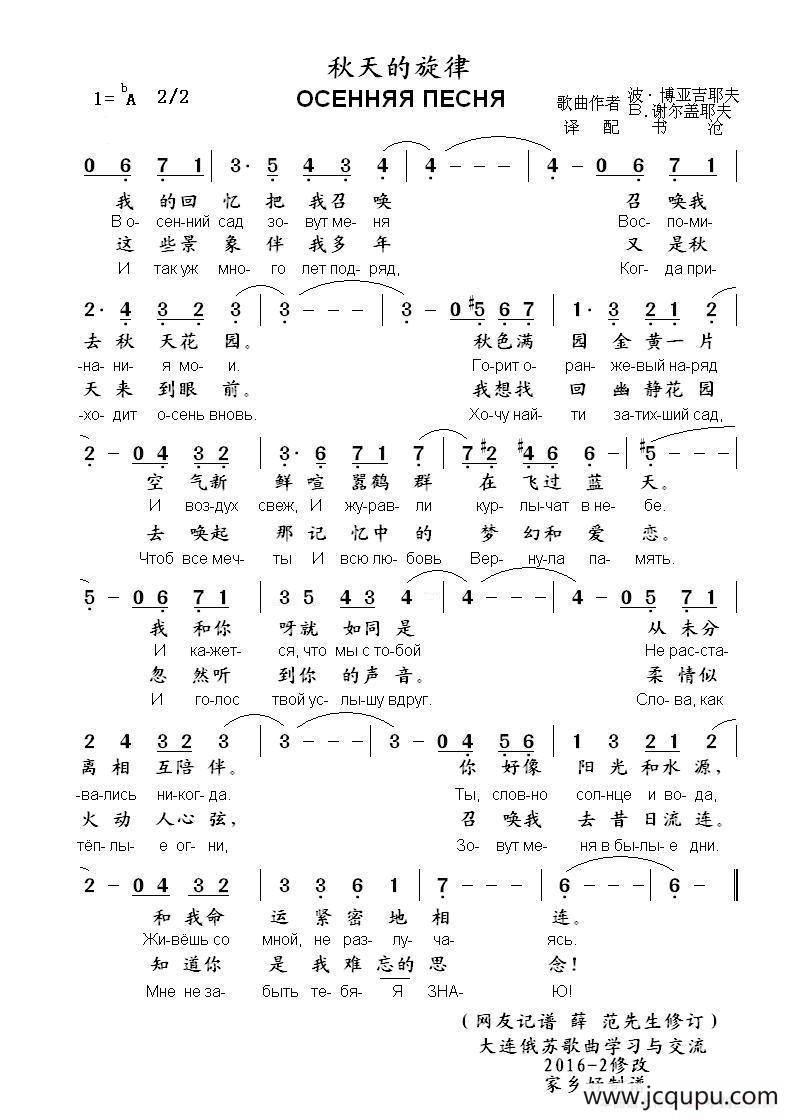 秋天的旋律
1= ᵇA 2/2
ОСЕННЯЯ ПЕСНЯ
歌曲作者 波·博亚吉耶夫
В.谢尔盖耶夫
译 配 书 沧
0 6 7 1 | 3· 5 4 3 4 | 4 - - - | 4 - 0 6 7 1 |
我 的回 忆 把 我召 唤 召 唤我
В о- сен-ний сад зо- вут ме- ня Вос- по-ми-
这 些景 象 伴 我多 年 又 是秋
И так уж мно- го лет под- ряд, Ког- да при-
2· 4 3 2 3 | 3 - - - | 3 - 0 #5 6 7 | 1· 3 2 1 2 |
去 秋 天花 园。 秋色满 园 金 黄一 片
-на- ни- я мо- и. Го-рит о- ран- же-вый на-ряд
天 来 到眼 前。 我想找 回 幽 静花 园
-хо- дит о-сень вновь. Хо-чу най- ти за-тих-ший сад,
2 - 0 4 3 2 | 3· 6 7 1 7 | 7 #2 #4 6 6 - | #5 - - - |
空 气新 鲜 喧 嚣鹤 群 在 飞过 蓝 天。
И воз-дух свеж, И жу-рав- ли кур- лы-чат в не- бе.
去 唤起 那 记 忆中 的 梦 幻和 爱 恋。
Чтоб все меч- ты И всю лю-бовь Вер- ну-ла па- мять.
5 - 0 6 7 1 | 3 5 4 3 4 | 4 - - - | 4 - 0 5 7 1 |
我 和你 呀就 如同 是 从 未分
И ка-жет- ся, что мы с то-бой Не рас-ста-
忽 然听 到你 的声 音。 柔 情似
И го-лос твой ус- лы-шу вдруг. Сло-ва, как
2 4 3 2 3 | 3 - - - | 3 - 0 4 5 6 | 1 3 2 1 2 |
离 相 互陪 伴。 你 好像 阳 光 和水 源,
-ва-лись ни-ког- да. Ты, слов-но сол-нце и во- да,
火 动 人心 弦, 召 唤我 去 昔 日流 连。
тёп-лы- е ог- ни, Зо- вут ме- ня в бы-лы- е дни.
2 - 0 4 3 2 | 3 3 6 1 | 7 - - - | 6 - - - | 6 - ‖
和 我命 运 紧 密 地 相 连。
Жи-вёшь со мной, не раз- лу- ча- ясь.
知 道你 是 我 难 忘的 思 念!
Мне не за- быть те- бя- Я ЗНА- Ю!
(网友记谱 薛 范先生修订)
大连俄苏歌曲学习与交流
2016-2修改
家乡好制谱
www.jcqupu.com